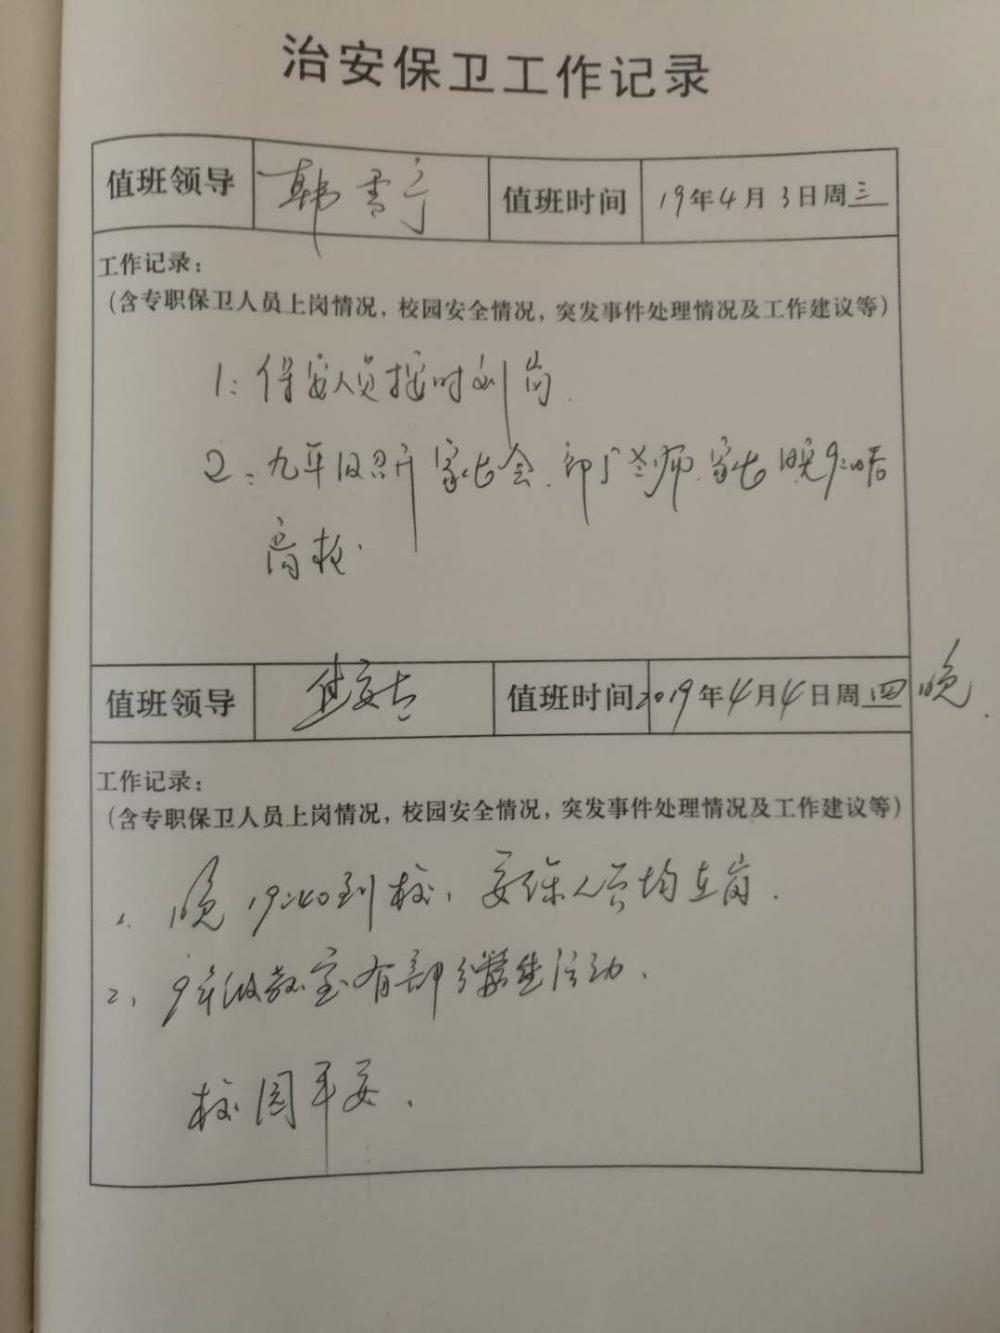 治安保卫工作记录
值班领导 韩雪宁 值班时间 19年4月3日周三
工作记录：
（含专职保卫人员上岗情况，校园安全情况，突发事件处理情况及工作建议等）
1：保安人员按时到岗.
2：九年级召开家长会.部分老师.家长晚9:00后
离校.
值班领导 值班时间 2019年4月4日周四晚.
工作记录：
（含专职保卫人员上岗情况，校园安全情况，突发事件处理情况及工作建议等）
1、晚19:40到校，安保人员均在岗.
2、9年级教室有部分学生活动.
校园平安.